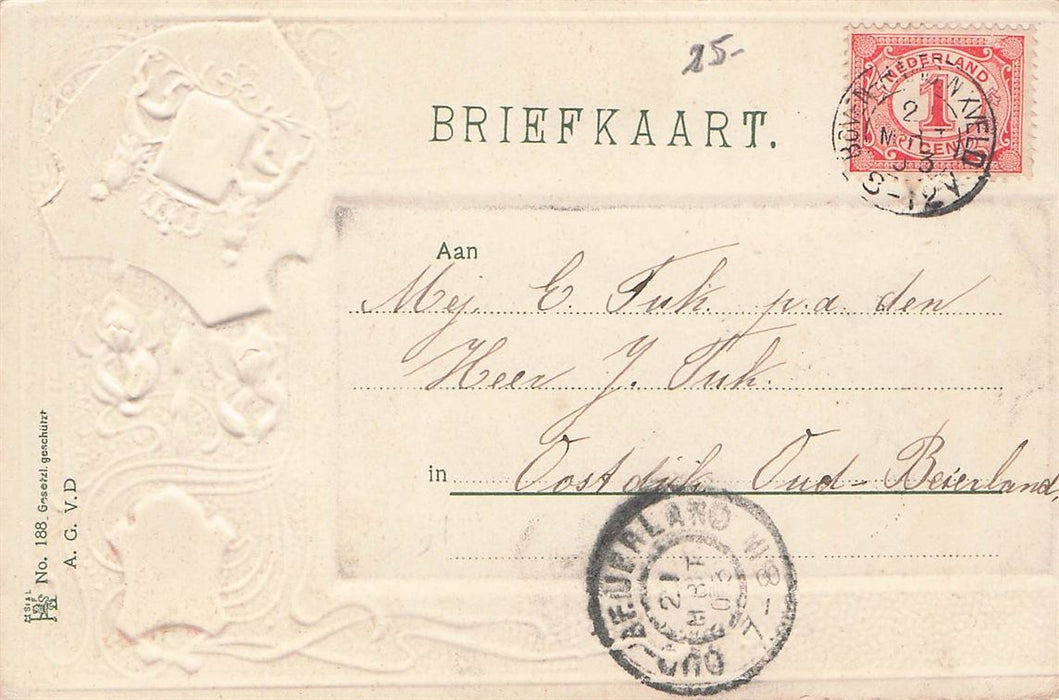 25.-
BRIEFKAART.
NEDERLAND
1
CENT
Aan
Mej. E. Tuk. p.a. den
Heer J. Tuk.
in Oostdijk Oud-Beierland,
OUD-BEIJERLAND
21
MRT
03
No. 188 Gesetzl. geschützt
A. G. V. D